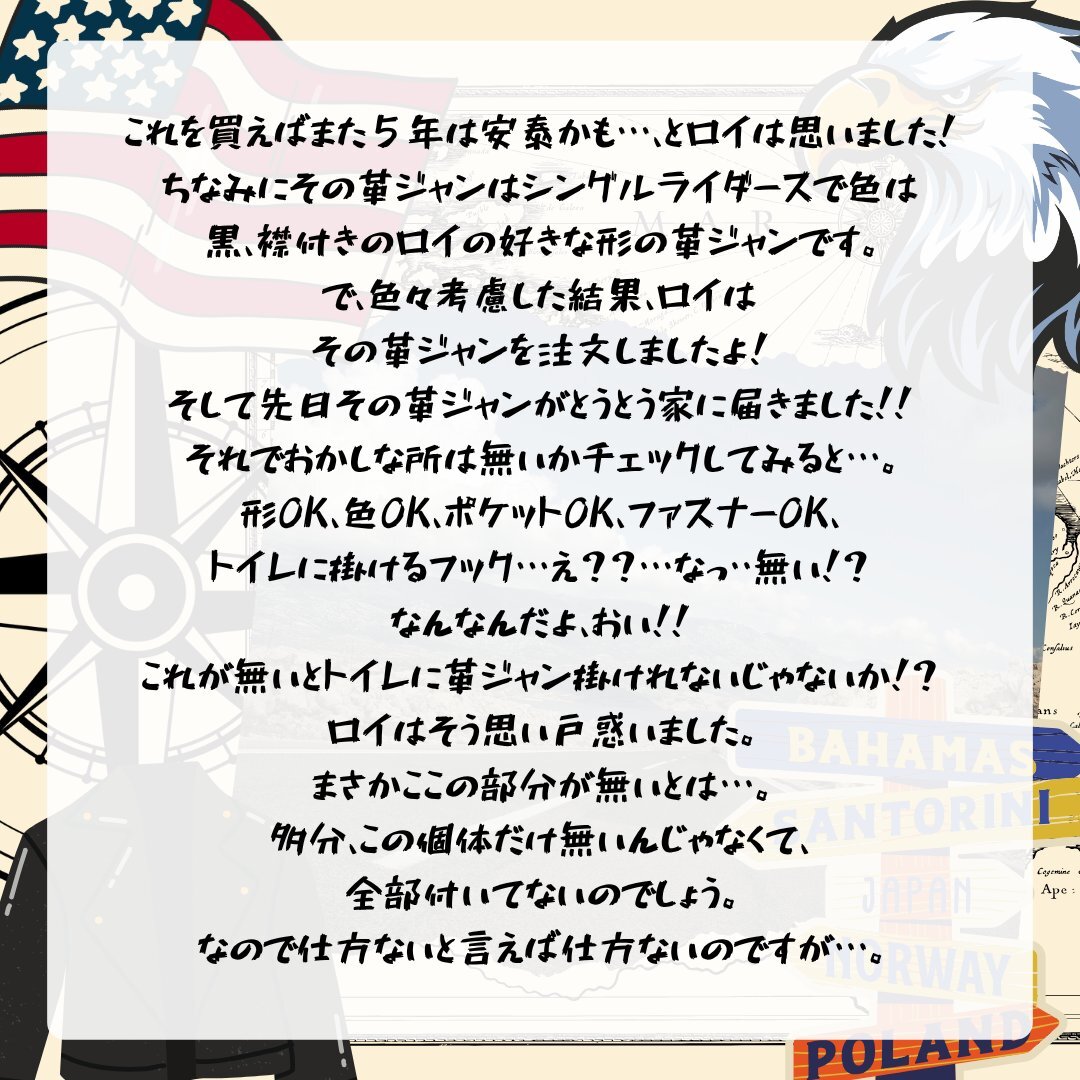 これを買えばまた5年は安泰かも…､とロイは思いました!
ちなみにその革ジャンはシングルライダースで色は
黒､襟付きのロイの好きな形の革ジャンです。
で､色々考慮した結果､ロイは
その革ジャンを注文しましたよ!
そして先日その革ジャンがとうとう家に届きました!!
それでおかしな所は無いかチェックしてみると…。
形OK､色OK､ポケットOK､ファスナーOK､
トイレに掛けるフック…え??…なっ‥無い!?
なんなんだよ､おい!!
これが無いとトイレに革ジャン掛けれないじゃないか!?
ロイはそう思い戸惑いました。
まさかここの部分が無いとは…。
多分､この個体だけ無いんじゃなくて､
全部付いてないのでしょう。
なので仕方ないと言えば仕方ないのですが…。
MAR
BAHAMAS
SANTORINI
JAPAN
NORWAY
POLAND
Cogemine
Ape :